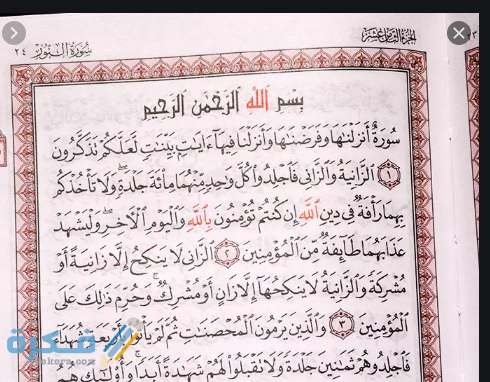 الجزء الثامن عشر
سورة النور ٢٤
بِسْمِ اللَّهِ الرَّحْمَٰنِ الرَّحِيمِ
سُورَةٌ أَنزَلْنَٰهَا وَفَرَضْنَٰهَا وَأَنزَلْنَا فِيهَآ ءَايَٰتٍۭ بَيِّنَٰتٍ لَّعَلَّكُمْ تَذَكَّرُونَ
١ الزَّانِيَةُ وَالزَّانِي فَاجْلِدُوا كُلَّ وَٰحِدٍ مِّنْهُمَا مِائَةَ جَلْدَةٍ وَلَا تَأْخُذْكُم
بِهِمَا رَأْفَةٌ فِي دِينِ اللَّهِ إِن كُنتُمْ تُؤْمِنُونَ بِاللَّهِ وَالْيَوْمِ الْأَخِرِ وَلْيَشْهَدْ
عَذَابَهُمَا طَآئِفَةٌ مِّنَ الْمُؤْمِنِينَ ٢ الزَّانِي لَا يَنكِحُ إِلَّا زَانِيَةً أَوْ
مُشْرِكَةً وَالزَّانِيَةُ لَا يَنكِحُهَآ إِلَّا زَانٍ أَوْ مُشْرِكٌ وَحُرِّمَ ذَٰلِكَ عَلَى
الْمُؤْمِنِينَ ٣ وَالَّذِينَ يَرْمُونَ الْمُحْصَنَٰتِ ثُمَّ لَمْ يَأْتُوا بِأَرْبَعَةِ شُهَدَآءَ
فَاجْلِدُوهُمْ ثَمَٰنِينَ جَلْدَةً وَلَا تَقْبَلُوا لَهُمْ شَهَٰدَةً أَبَدًا وَأُولَٰٓئِكَ هُمُ
فكرة